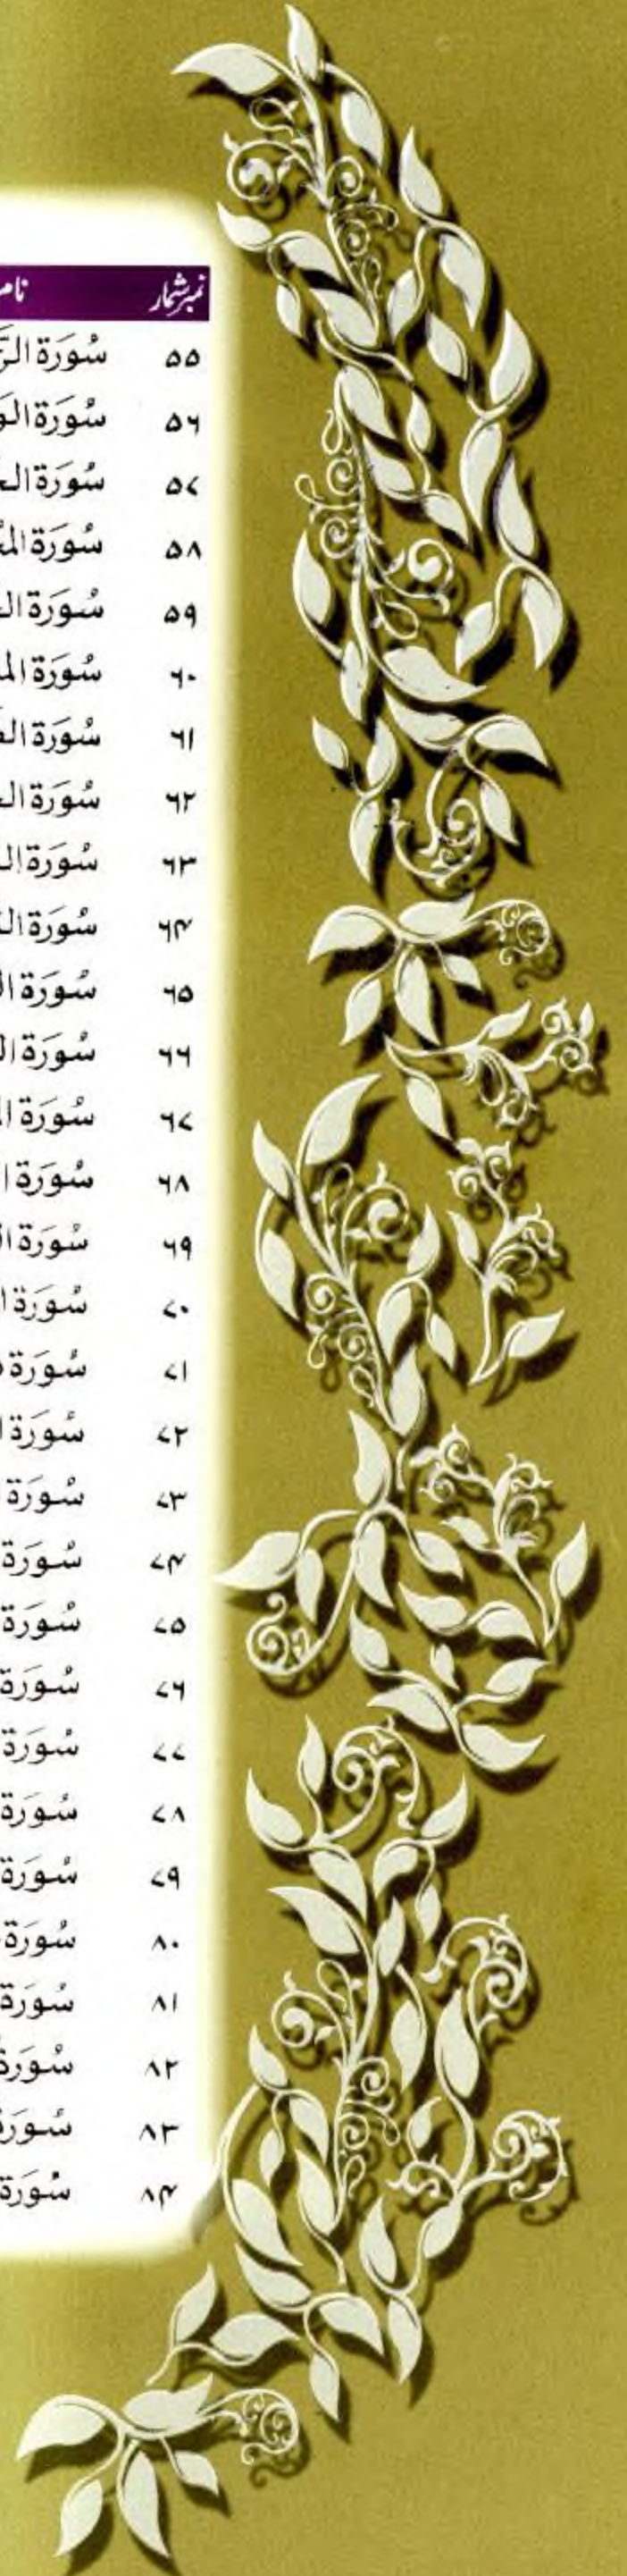 نمبر شمار نام
۵۵ سُورَة الرَّ
۵۶ سُورَة الوَ
۵۷ سُورَة الـ
۵۸ سُورَة المُ
۵۹ سُورَة الـ
۶۰ سُورَة المـ
۶۱ سُورَة الصَّ
۶۲ سُورَة الـ
۶۳ سُورَة الـ
۶۴ سُورَة الـ
۶۵ سُورَة ا
۶۶ سُورَة ال
۶۷ سُورَة ا
۶۸ سُورَة ا
۶۹ سُورَة ا
۷۰ سُورَة ا
۷۱ سُورَة
۷۲ سُورَة ا
۷۳ سُورَة
۷۴ سُورَة
۷۵ سُورَة
۷۶ سُورَة
۷۷ سُورَة
۷۸ سُورَة
۷۹ سُورَة
۸۰ سُورَة
۸۱ سُورَة
۸۲ سُورَة
۸۳ سُورَة
۸۴ سُورَة